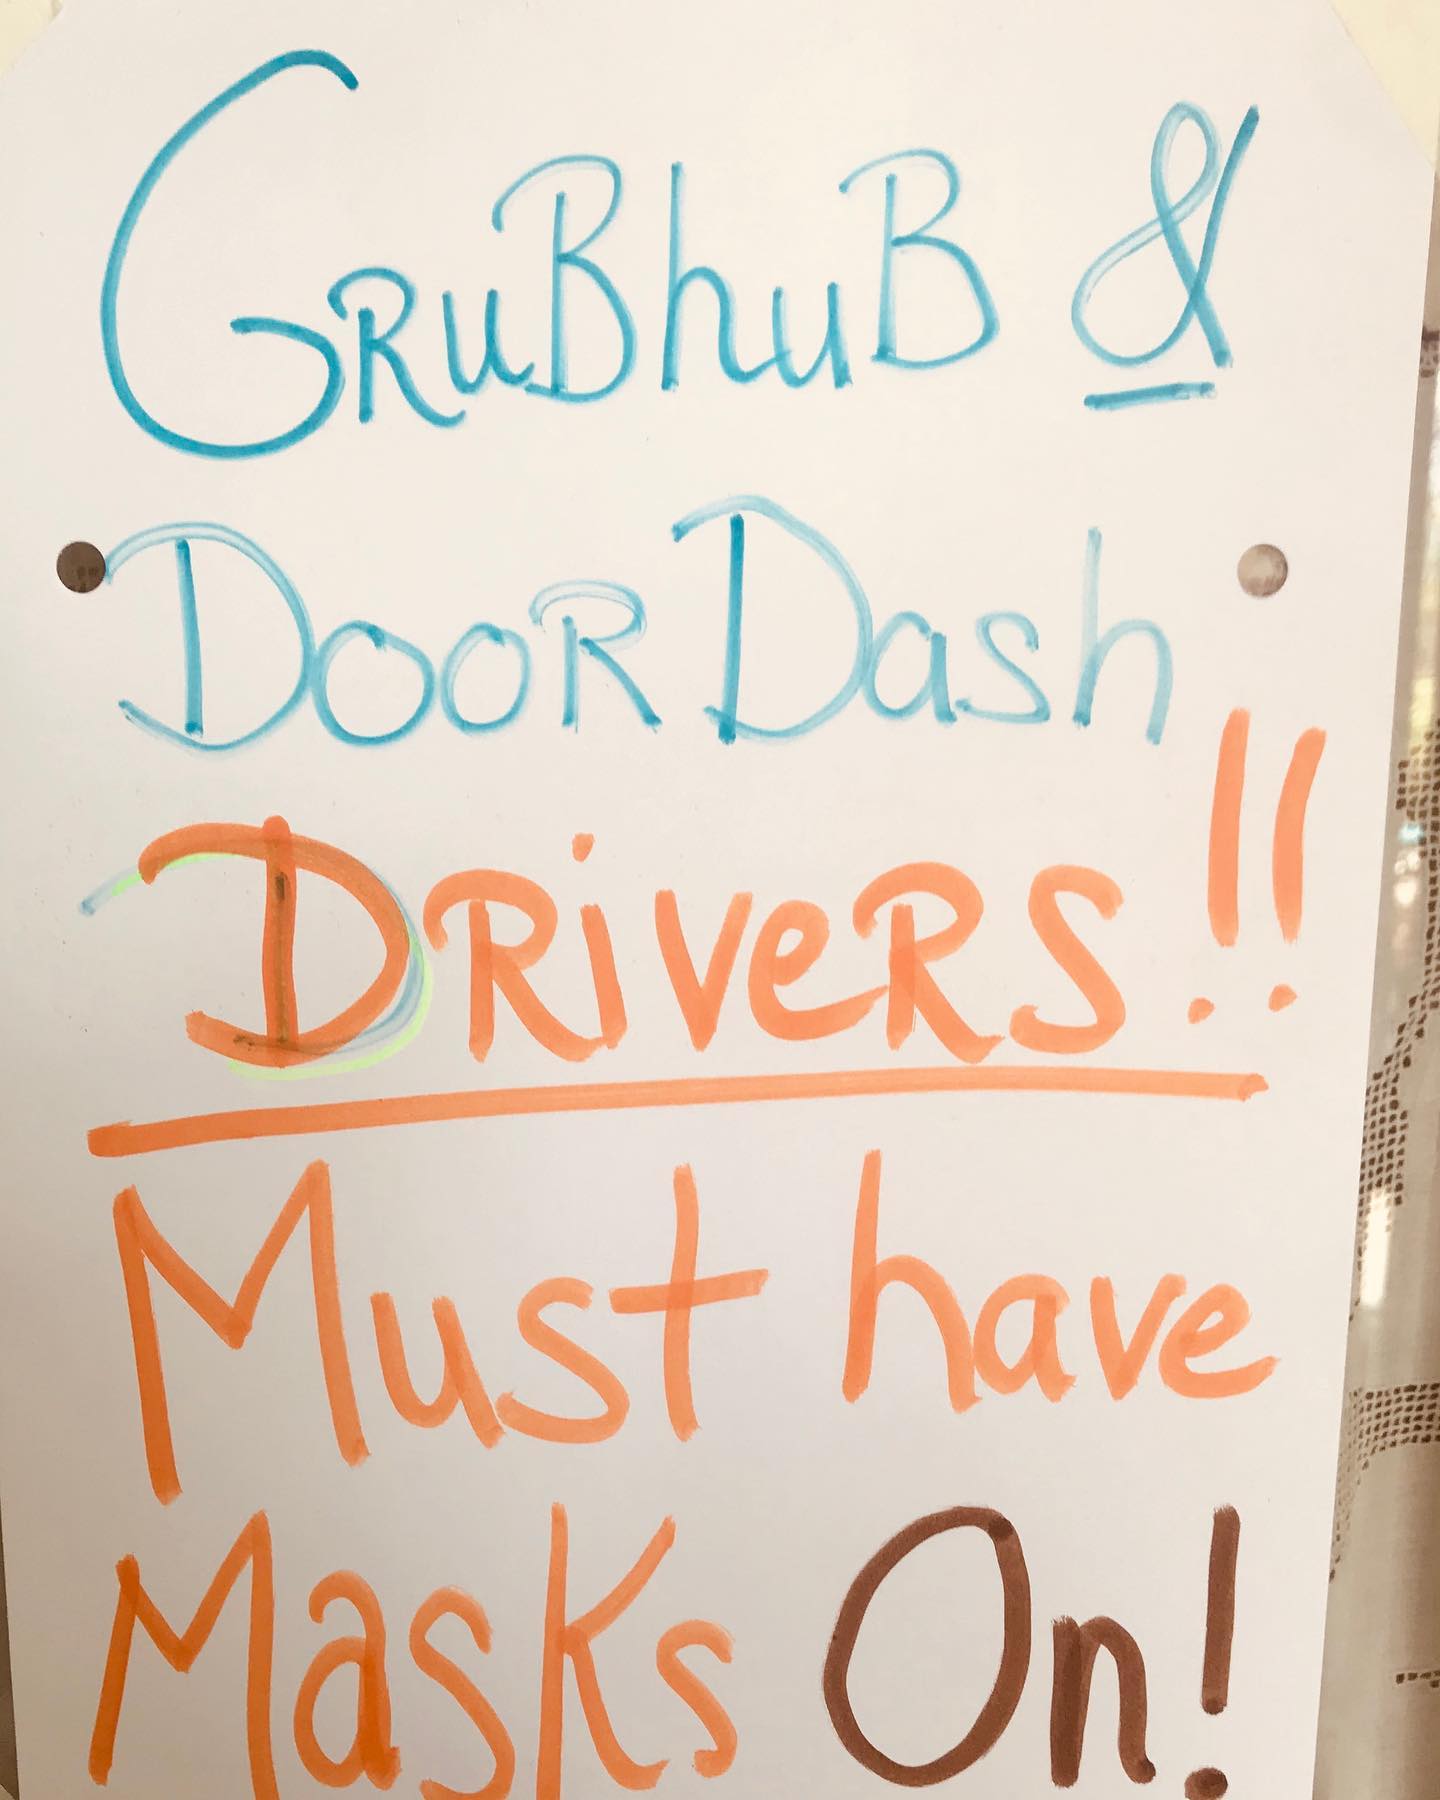 GRuBhuB &
DooR Dash
DRiveRS!!
Must have
Masks On!